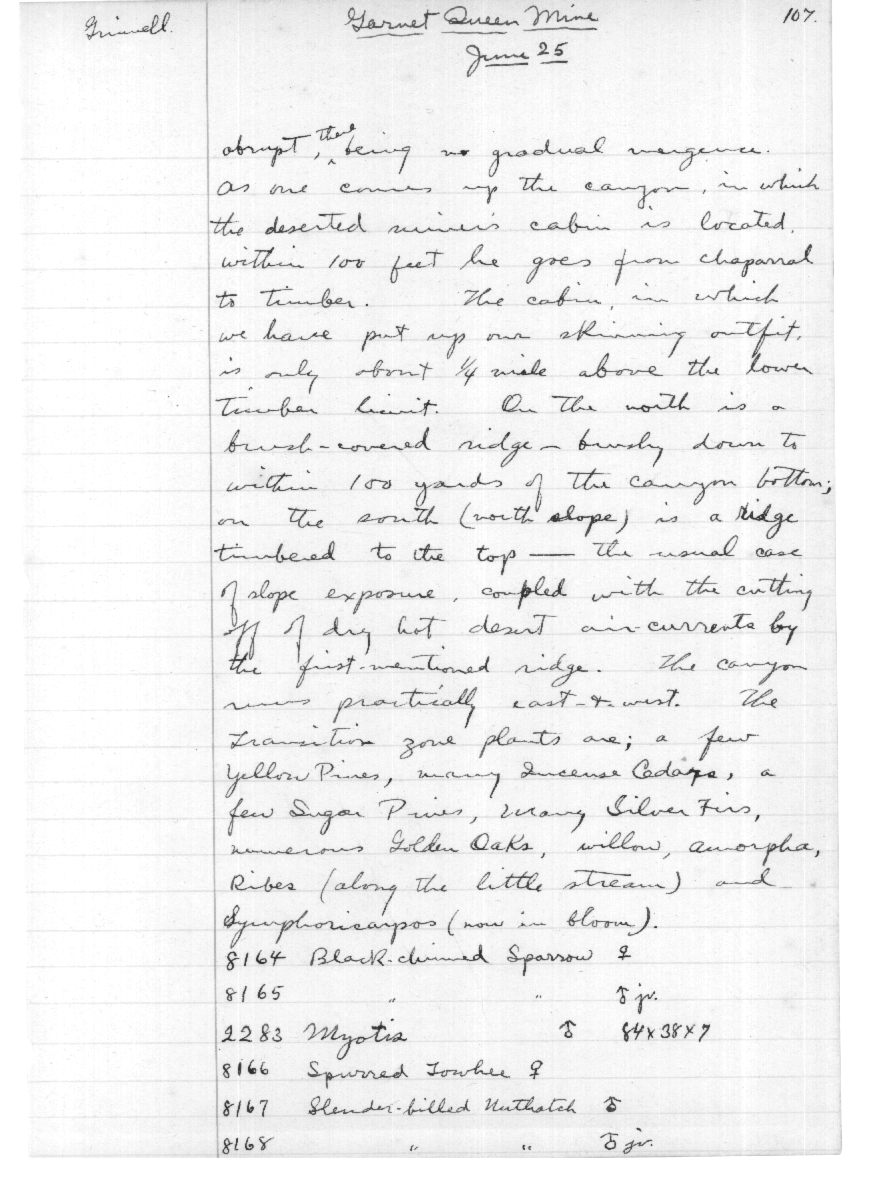 Grinnell.
Garnet Queen Mine
107.
June 25
abrupt, there being no gradual mergence.
As one comes up the canyon, in which
the deserted miner's cabin is located,
within 100 feet he goes from chaparral
to timber. The cabin, in which
we have put up our skinning outfit,
is only about 1/4 mile above the lower
timber limit. On the north is a
brush-covered ridge – brushy down to
within 100 yards of the canyon bottom;
on the south (north slope) is a ridge
timbered to the top — the usual case
of slope exposure, coupled with the cutting
off of dry hot desert air-currents by
the first-mentioned ridge. The canyon
runs practically east-&-west. The
Transition zone plants are; a few
Yellow Pines, many Incense Cedars, a
few Sugar Pines, many Silver Firs,
numerous Golden Oaks, willow, amorpha,
Ribes (along the little stream) and
Symphoricarpos (now in bloom).
8164 Black-chinned Sparrow ♀
8165 " " ♂ jv.
2283 Myotis ♂ 84x38x7
8166 Spurred Towhee ♀
8167 Slender-billed Nuthatch ♂
8168 " " ♂ jv.